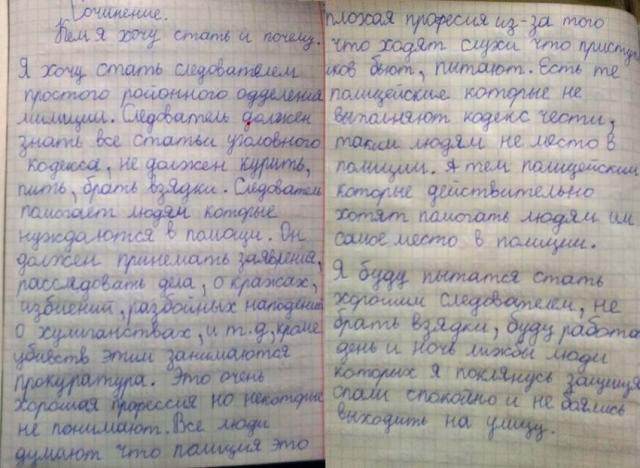 Сочинение.
Кем я хочу стать и почему.
Я хочу стать следователем
простого районного одделения
милиции. Следователь должен
знать все статьи уголовного
кодекса, не должен курить,
пить, брать взядки. Следователь
помогает людям которые
нуждаются в помощи. Он
должен принемать заявления,
расследовать дела, о кражах,
избиений, разбойных нападений
о хулиганствах, и т.д, кроме
убивств этим занимаются
прокуратура. Это очень
хорошая професся но некоторые
не понимают. Все люди
думают что полиция это
плохая професия из-за того
что ходят слухи что приступ
ков бьют, пытают. Есть те
полицейские которые не
выполняют кодекс чести,
таким людям не место в
полиции. А тем полицейским
которые действительно
хотят помогать людям им
самое место в полиции.
Я буду пытатся стать
хорошим следователем, не
брать взядки, буду работа
день и ночь лижбы люди
которых я поклянусь защища
спали спокойно и не боялись
выходить на улицу.